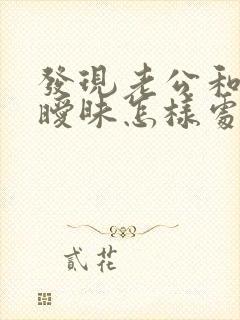 發現老公和
曖昧怎樣處
貳花